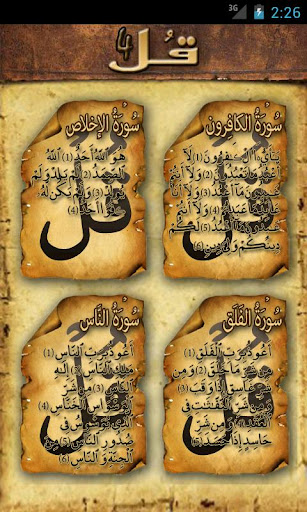 3G 2:26
قُل 4
سُوْرَةُ الكَافِرُون
يَٰٓأَيُّهَا ٱلْكَٰفِرُونَ(1) لَآ
أَعْبُدُ مَا تَعْبُدُونَ(2) وَلَآ أَنتُمْ
عَٰبِدُونَ مَآ أَعْبُدُ(3) وَلَآ أَنَا۠
عَابِدٌ مَّا عَبَدتُّمْ(4) وَلَآ أَنتُمْ
عَٰبِدُونَ مَآ أَعْبُدُ(5) لَكُمْ
دِينُكُمْ وَلِيَ دِينِ(6)
سُوْرَةُ الإِخلَاص
هُوَ ٱللَّهُ أَحَدٌ(1) ٱللَّهُ
ٱلصَّمَدُ(2) لَمْ يَلِدْ وَلَمْ
يُولَدْ(3) وَلَمْ يَكُن لَّهُ
كُفُوًا أَحَدٌ(4)
سُوْرَةُ الفَلَق
أَعُوذُ بِرَبِّ ٱلْفَلَقِ(1)
مِن شَرِّ مَا خَلَقَ(2) وَمِن
شَرِّ غَاسِقٍ إِذَا وَقَبَ(3)
وَمِن شَرِّ ٱلنَّفَّٰثَٰتِ فِى
ٱلْعُقَدِ(4) وَمِن شَرِّ
حَاسِدٍ إِذَا حَسَدَ(5)
سُوْرَةُ النَّاس
أَعُوذُ بِرَبِّ ٱلنَّاسِ(1)
مَلِكِ ٱلنَّاسِ(2) إِلَٰهِ
ٱلنَّاسِ(3) مِن شَرِّ
ٱلْوَسْوَاسِ ٱلْخَنَّاسِ(4)
ٱلَّذِى يُوَسْوِسُ فِى
صُدُورِ ٱلنَّاسِ(5) مِنَ
ٱلْجِنَّةِ وَٱلنَّاسِ(6)
قل
قل
قل
قل